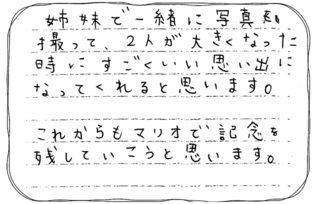 姉妹で一緒に写真を
撮って、2人が大きくなった
時にすごくいい思い出に
なってくれると思います。
これからもマリオで記念を
残していこうと思います。